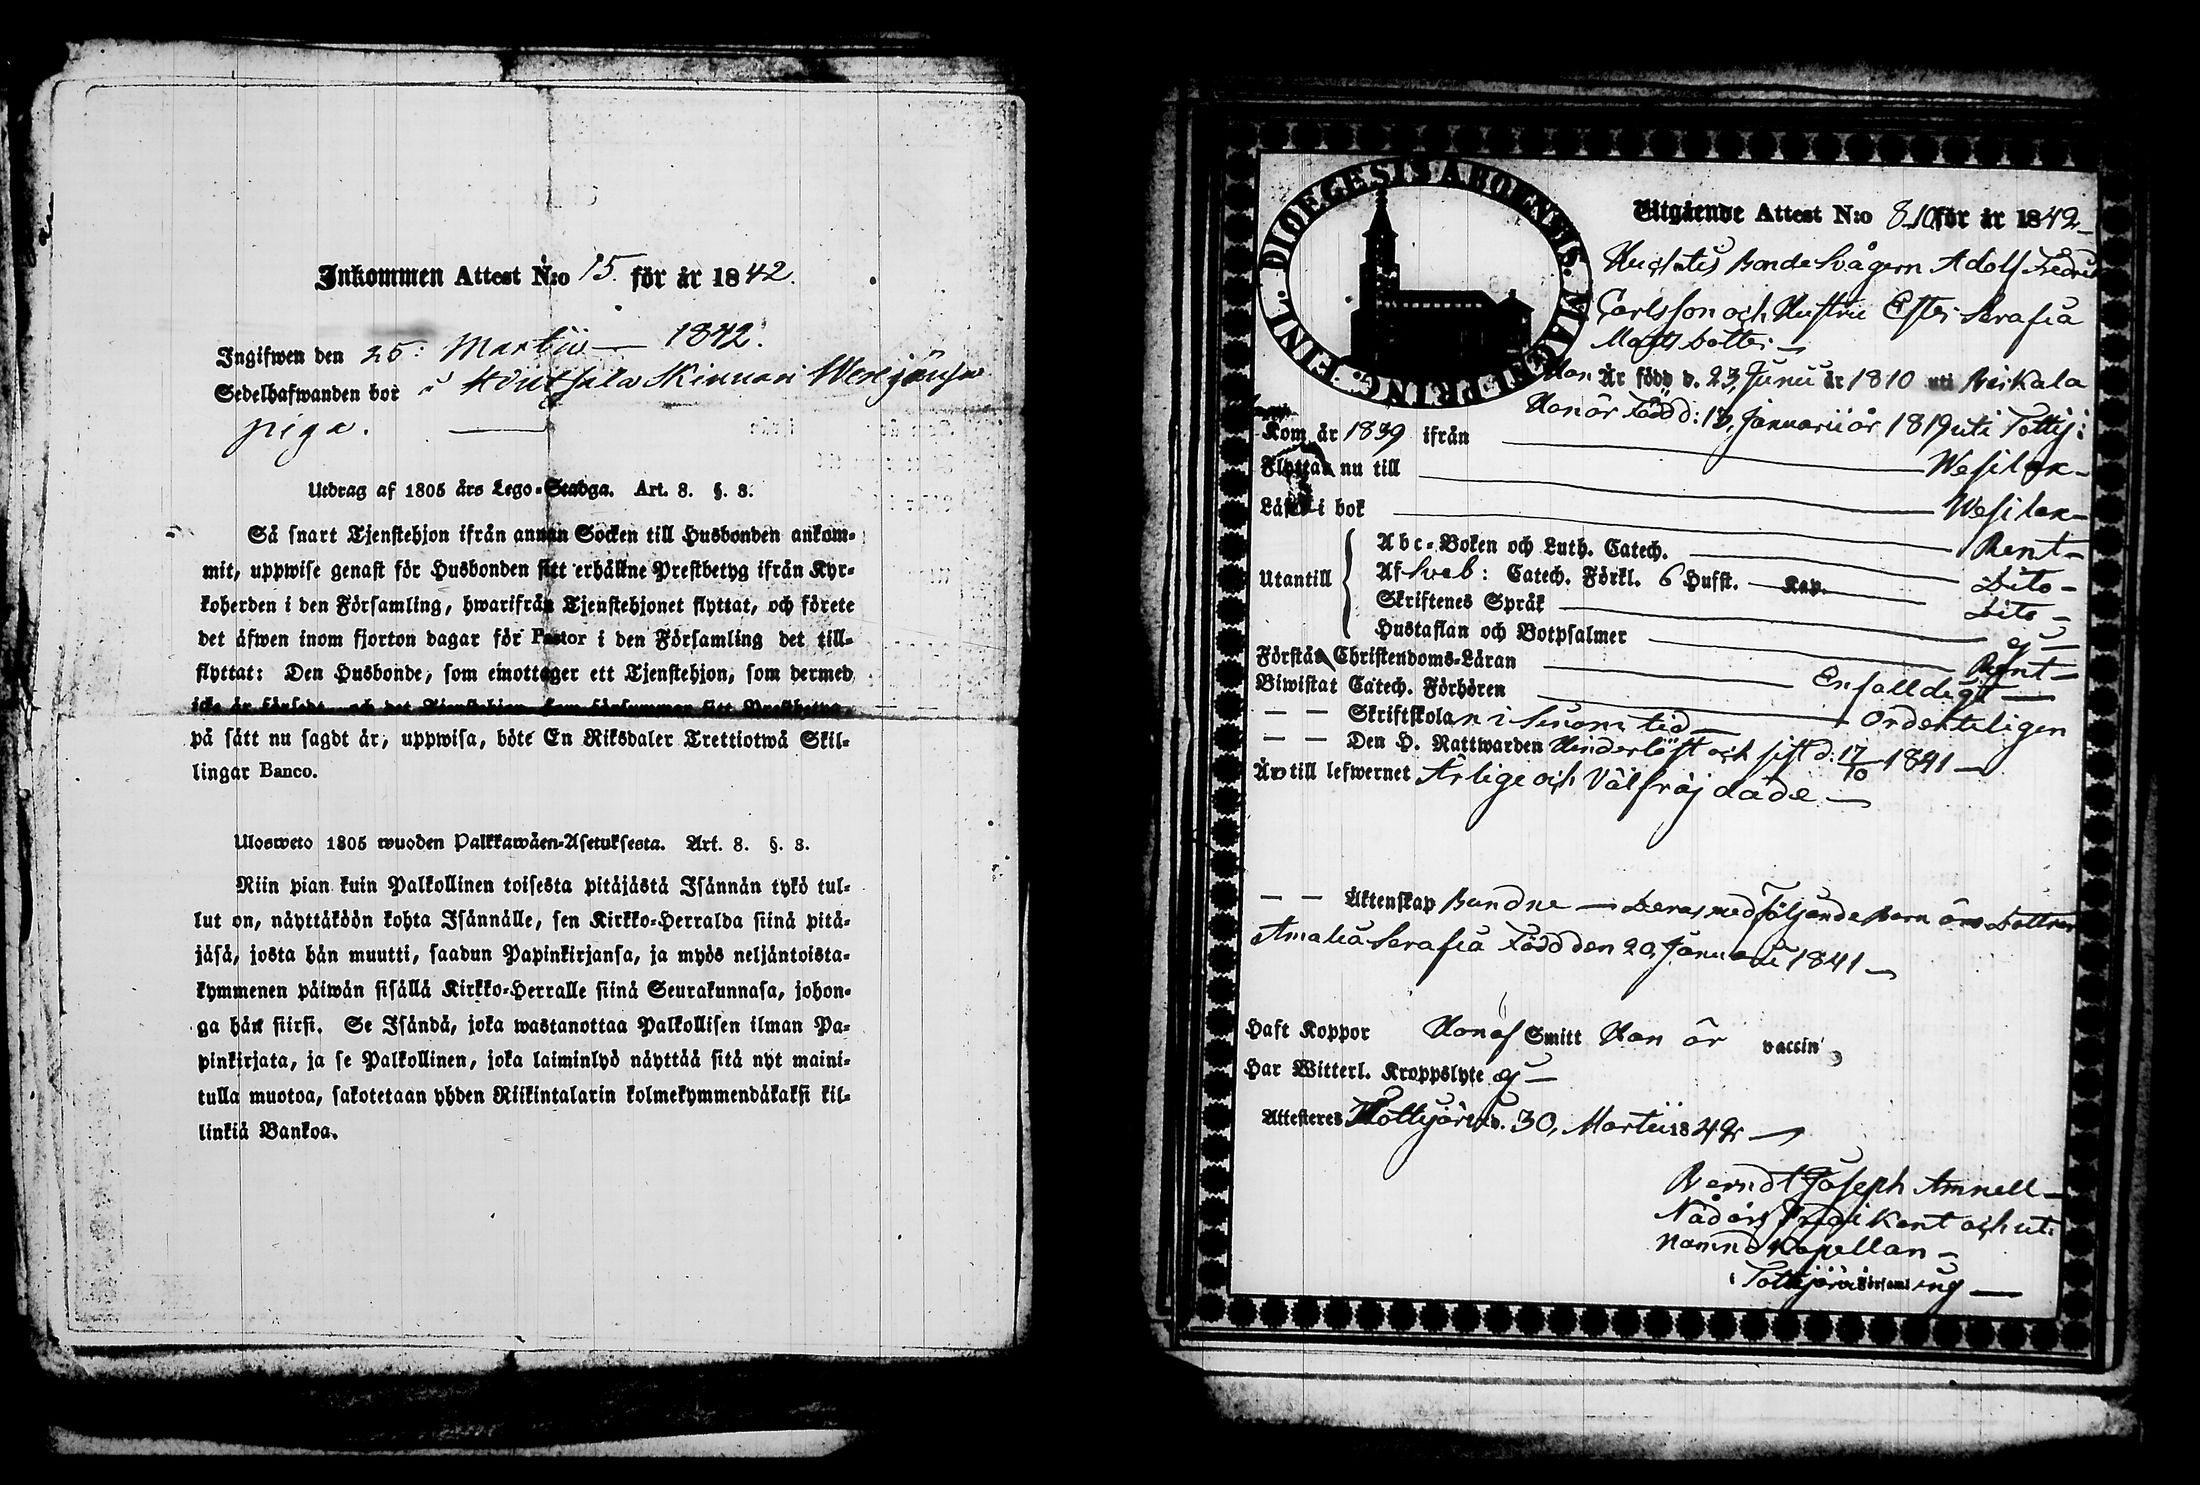 Inkommen Attest N:o 15. för år 1842.
Ingifwen den 25: Martii — 1842.
Sedelhafwanden bor i Skinnari
piga.
Utdrag af 1805 års Lego-Stadga. Art. 8. §. 8.
Så snart Tjenstehjon ifrån annan Socken till Husbonden ankom-
mit, uppwise genast för Husbonden sitt erhållne Prestbetyg ifrån Kyr-
koherden i den Församling, hwarifrån Tjenstehjonet flyttat, och förete
det äfwen inom fjorton dagar för Pastor i den Församling det till-
flyttat: Den Husbonde, som emottager ett Tjenstehjon, som dermed
icke är försedt och det Tjenstehjon som försummar sitt Prestbetyg,
på sätt nu sagdt är, uppwisa, böte En Riksdaler Trettiotwå Skil-
lingar Banco.
Ulosweto 1805 wuoden Palkkawäen-Asetuksesta. Art. 8. §. 8.
Niin pian kuin Palkollinen toisesta pitäjästä Isännän tykö tul-
lut on, näyttäköön kohta Isännälle, sen Kirkko-Herralda siinä pitä-
jäsä, josta hän muutti, saadun Papinkirjansa, ja myös neljäntoista-
kymmenen päiwän sisällä Kirkko-Herralle siinä Seurakunnasa, johon-
ga hän siirsi. Se Isändä, joka wastanottaa Palkollisen ilman Pa-
pinkirjata, ja se Palkollinen, joka laiminlyö näyttää sitä nyt maini-
tulla muotoa, sakotetaan yhden Riikintalarin kolmekymmendäkaksi kil-
linkiä Bankoa.
DIOECESIS ABOENSIS. MAGNI PRINC. FINL.
Utgående Attest N:o 8 för år 1842
Bonde Svågern Adolf Fedrik
Carlsson och Hustru Ester Serafia
Matts dotter
Han Är född d. 23, Junii år 1810 uti Birkala
Hon är Född d: Januarii år 1819 uti Tottij:
Kom år 1839 ifrån — Wesilax
Flyttar nu till — Wesilax
Läser i bok — Rent
Utantill Abc-Boken och Luth. Catech. — Dito
Af Sveb: Catech. Förkl. 6 Hufst. — Kap. — Dito
Skriftenes Språk — ej
Hustaflan och Botpsalmer — Rent
Förstår Christendoms-Läran — Enfalldigt
Biwistat Catech. Förhören — Ordenteligen
— — Skriftskolan i sinom tid
— — Den H. Nattwarden Hinderlöst och sist d: 17/10 1841
Är till lefwernet Ärlige och Välfräjdade
— — Äktenskap Bundne — Deras medföljande Barn är Dottren
Amalia Serafia Född den 20, Januarii 1841
Haft Koppor Hon af Smitt Han är vaccin
Har Witterl. Kroppslyte ej
Attesteras Tottijärvi d. 30, Martii 1842
Berndt Joseph Amnell
Nådårs Predikant och uti
Nämnd Kapellan
i Tottijärvi Församling